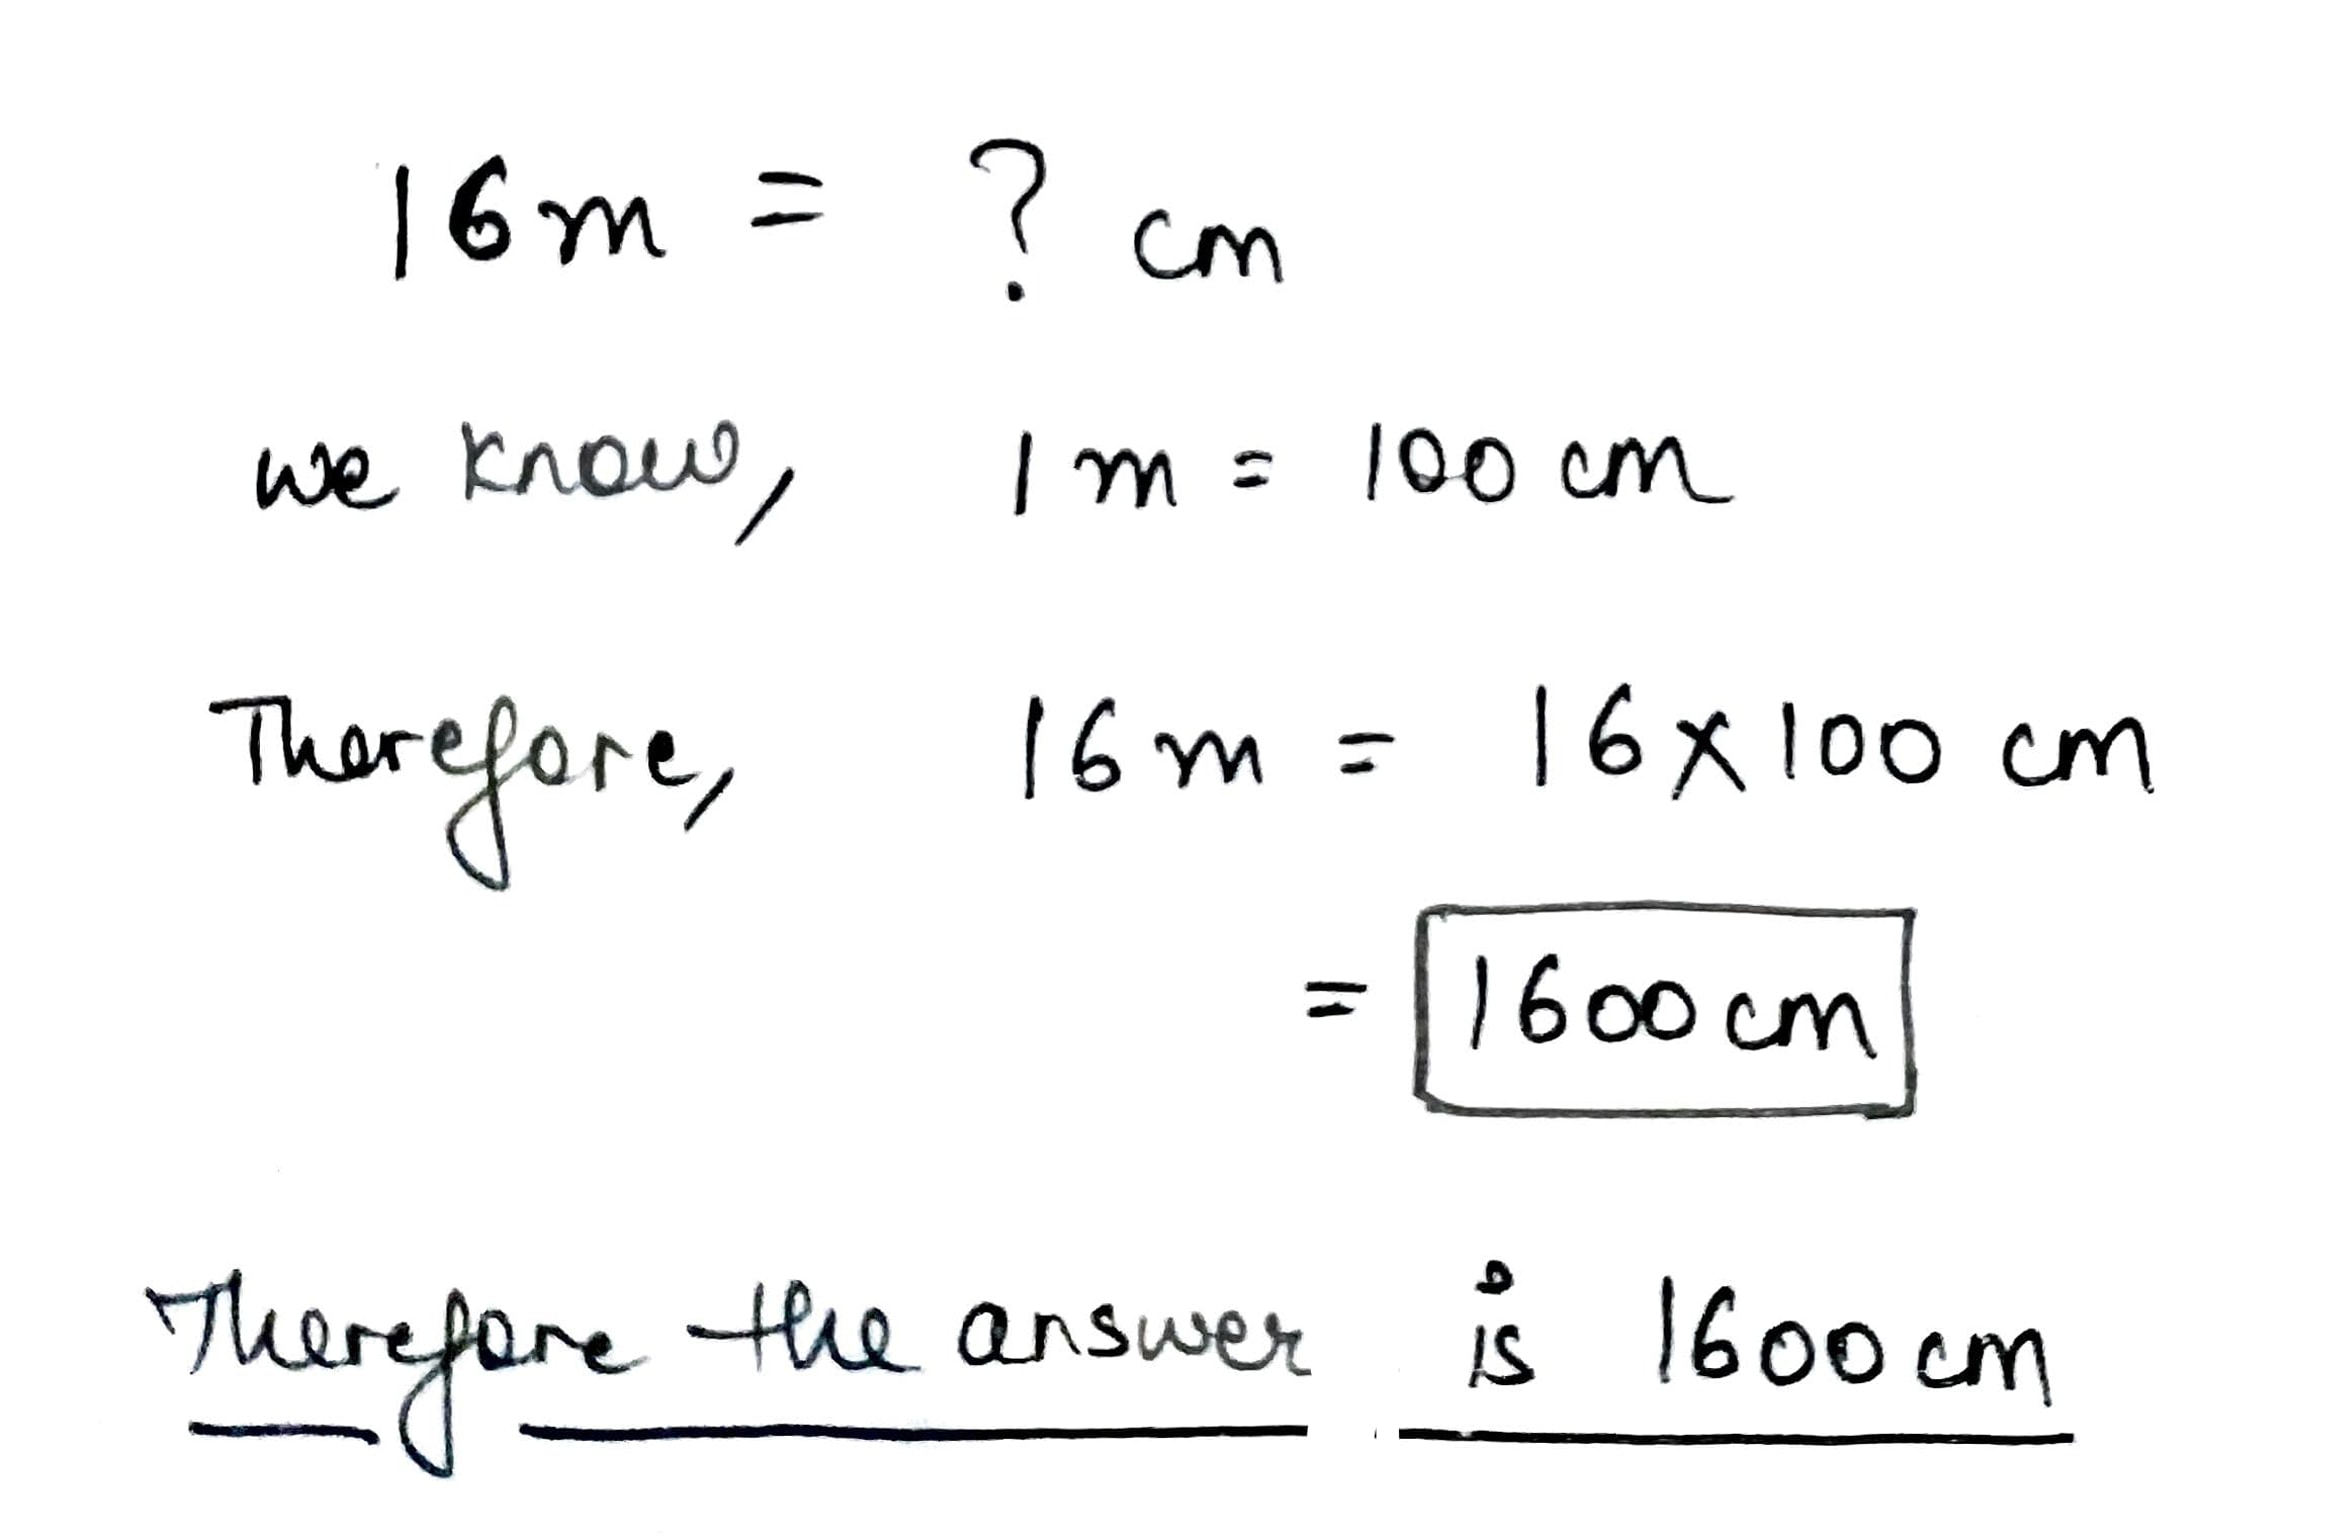 16m = ? cm
we know, 1m = 100 cm
Therefore, 16m = 16x100 cm
= 1600 cm
Therefore the answer is 1600 cm